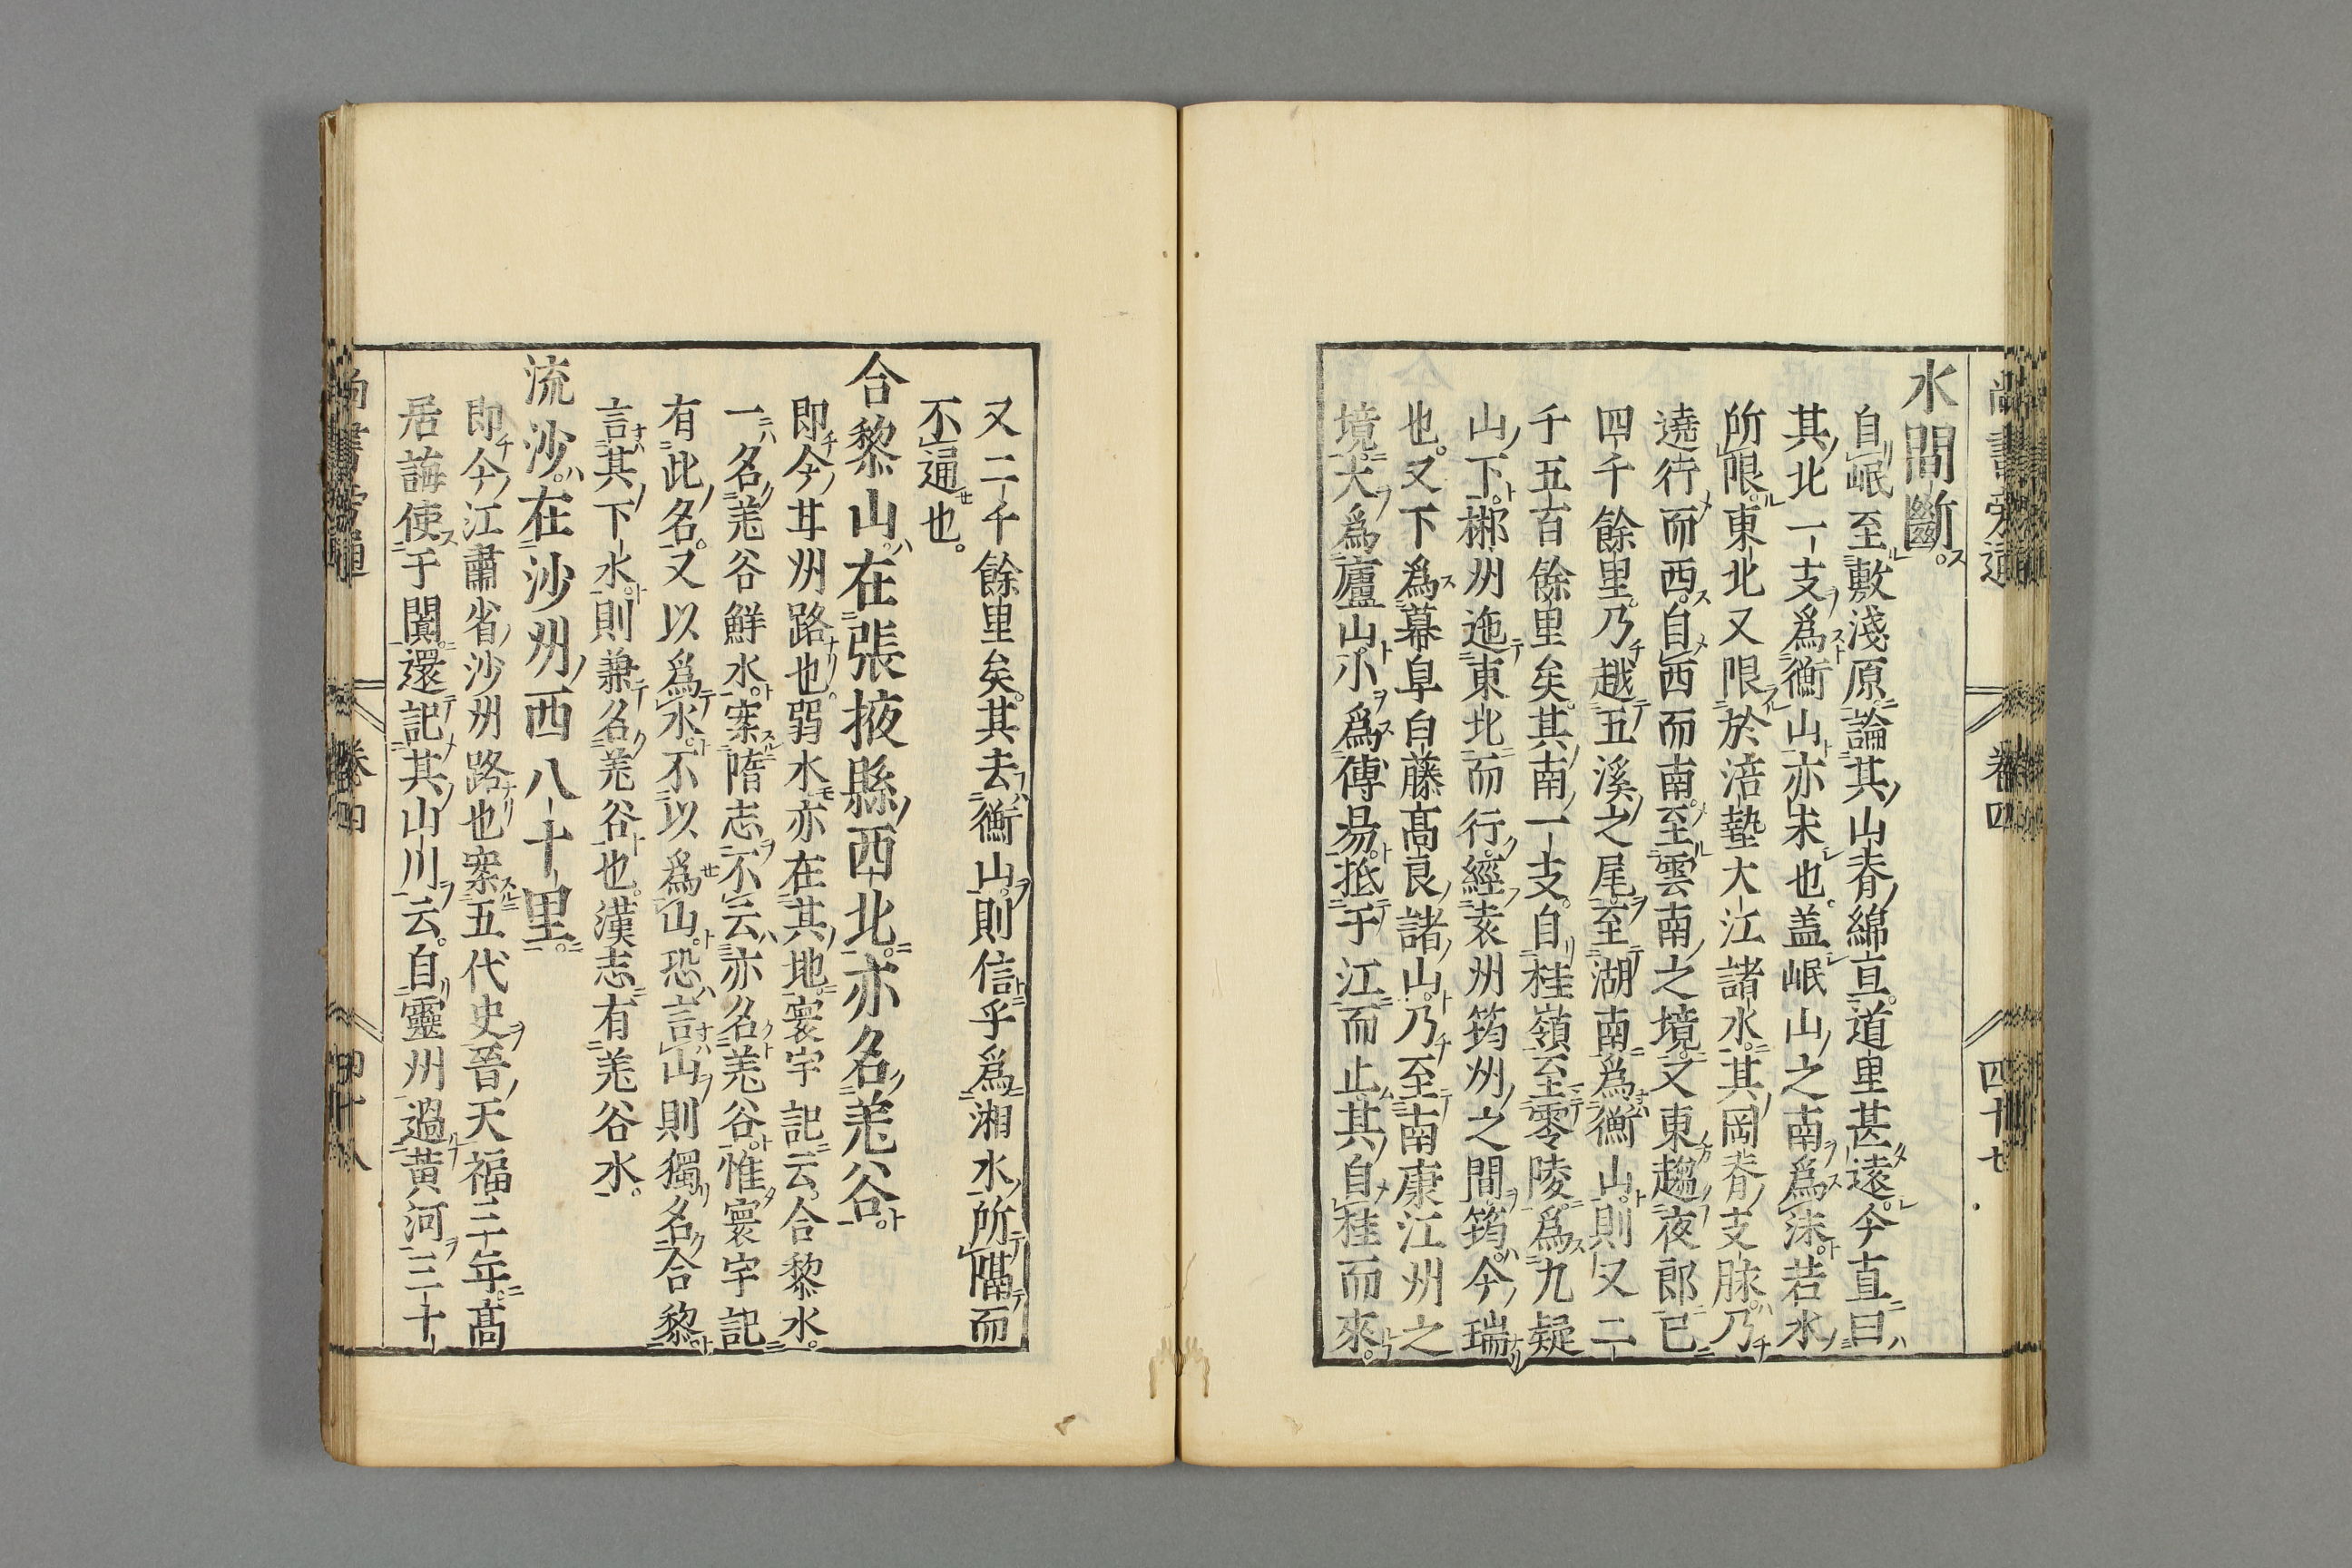 尚書旁通 卷四 四十七
水間斷。
自岷至敷淺原。論其山脊綿亘。道里甚遠。今直曰
其北一支爲衡山。亦未也。盖岷山之南爲洣。若水
所限。東北又限於涪墊大江諸水。其岡脊支脉。乃
遶行而西。自西而南。至雲南之境。又東趨夜郎。已
四千餘里。乃越五溪之尾。至湖南爲衡山。則又二
千五百餘里矣。其南一支。自桂嶺至零陵。爲九疑
山。下郴州。迤東北而行。經袁州筠州之間。筠。今瑞
也。又下爲幕阜白藤高良諸山。乃至南康江州之
境。大爲廬山。小爲傅昜。抵于江而止。其自桂而來。
又二千餘里矣。其去衡山。則信乎爲湘水所隔而
不通也。
合黎山。在張掖縣西北。亦名羌谷。
即今甘州路也。弱水亦在其地。寰宇記云。合黎水。
一名羌谷鮮水。案隋志不云亦名羌谷。惟寰宇記
有此名。又以爲水。不以爲山。恐言山則獨名合黎。
言其下水。則兼名羌谷也。漢志有羌谷水。
流沙。在沙州西八十里。
即今江肅省沙州路也。案五代史。晉天福三年。高
居誨使于闐。還記其山川云。自靈州過黃河三十
尚書旁通 卷四 四十八